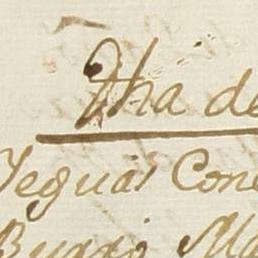 Ilha de
Yeguas Con
Burro Ma